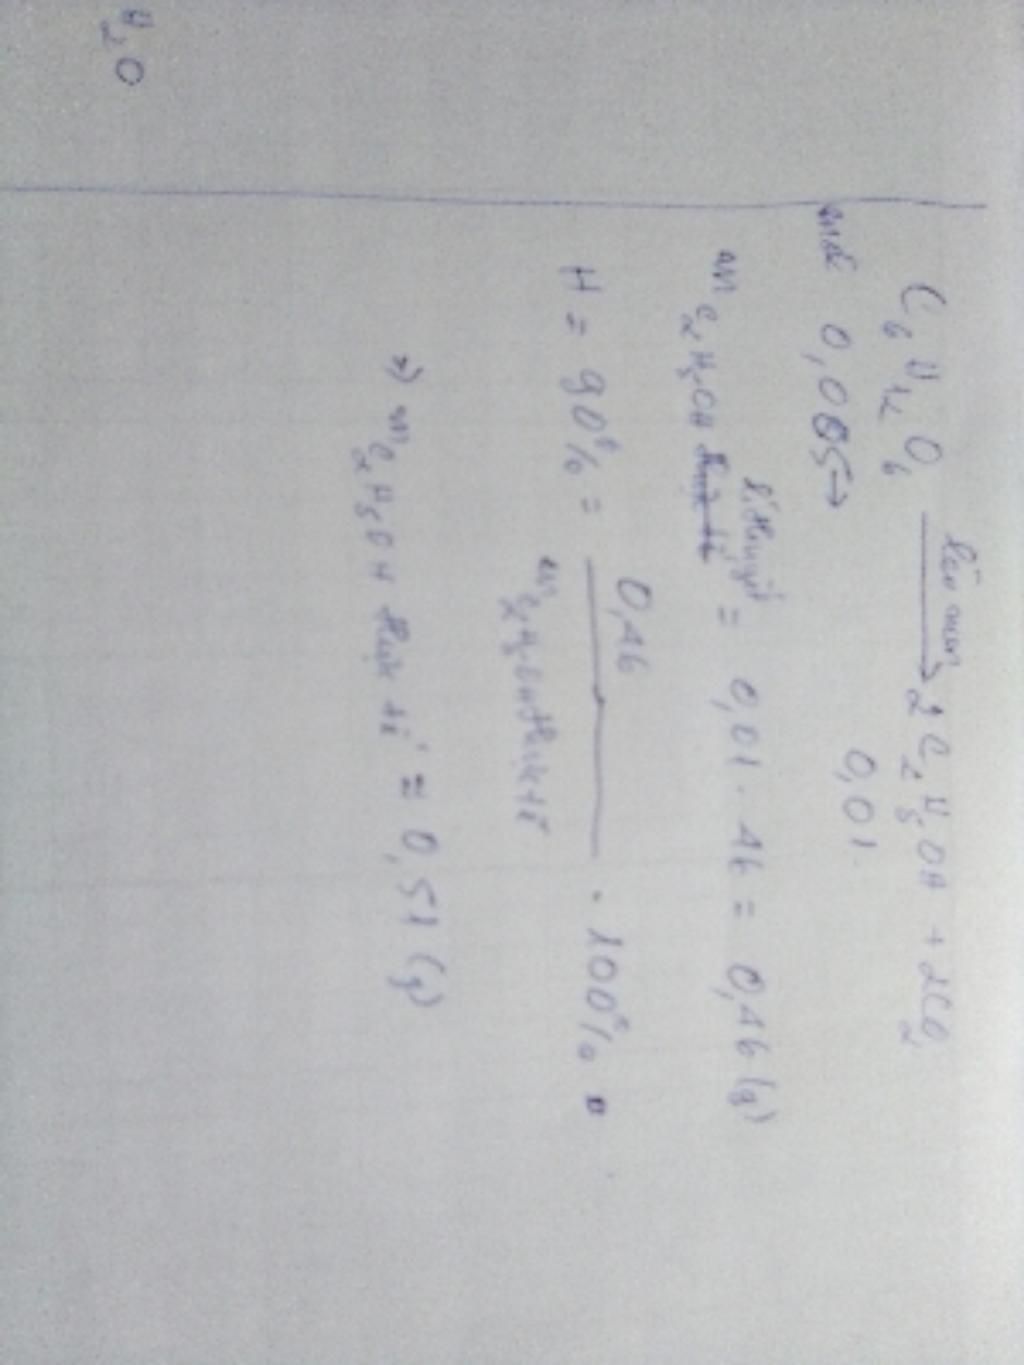 H2O
C6H12O6 lên men → 2C2H5OH + 2CO2
mol 0,005 → 0,01
mC2H5OH lí thuyết = 0,01 . 46 = 0,46 (g)
H = 90% = 0,46 / mC2H5OH thực tế . 100%
=> mC2H5OH thực tế = 0,51 (g)